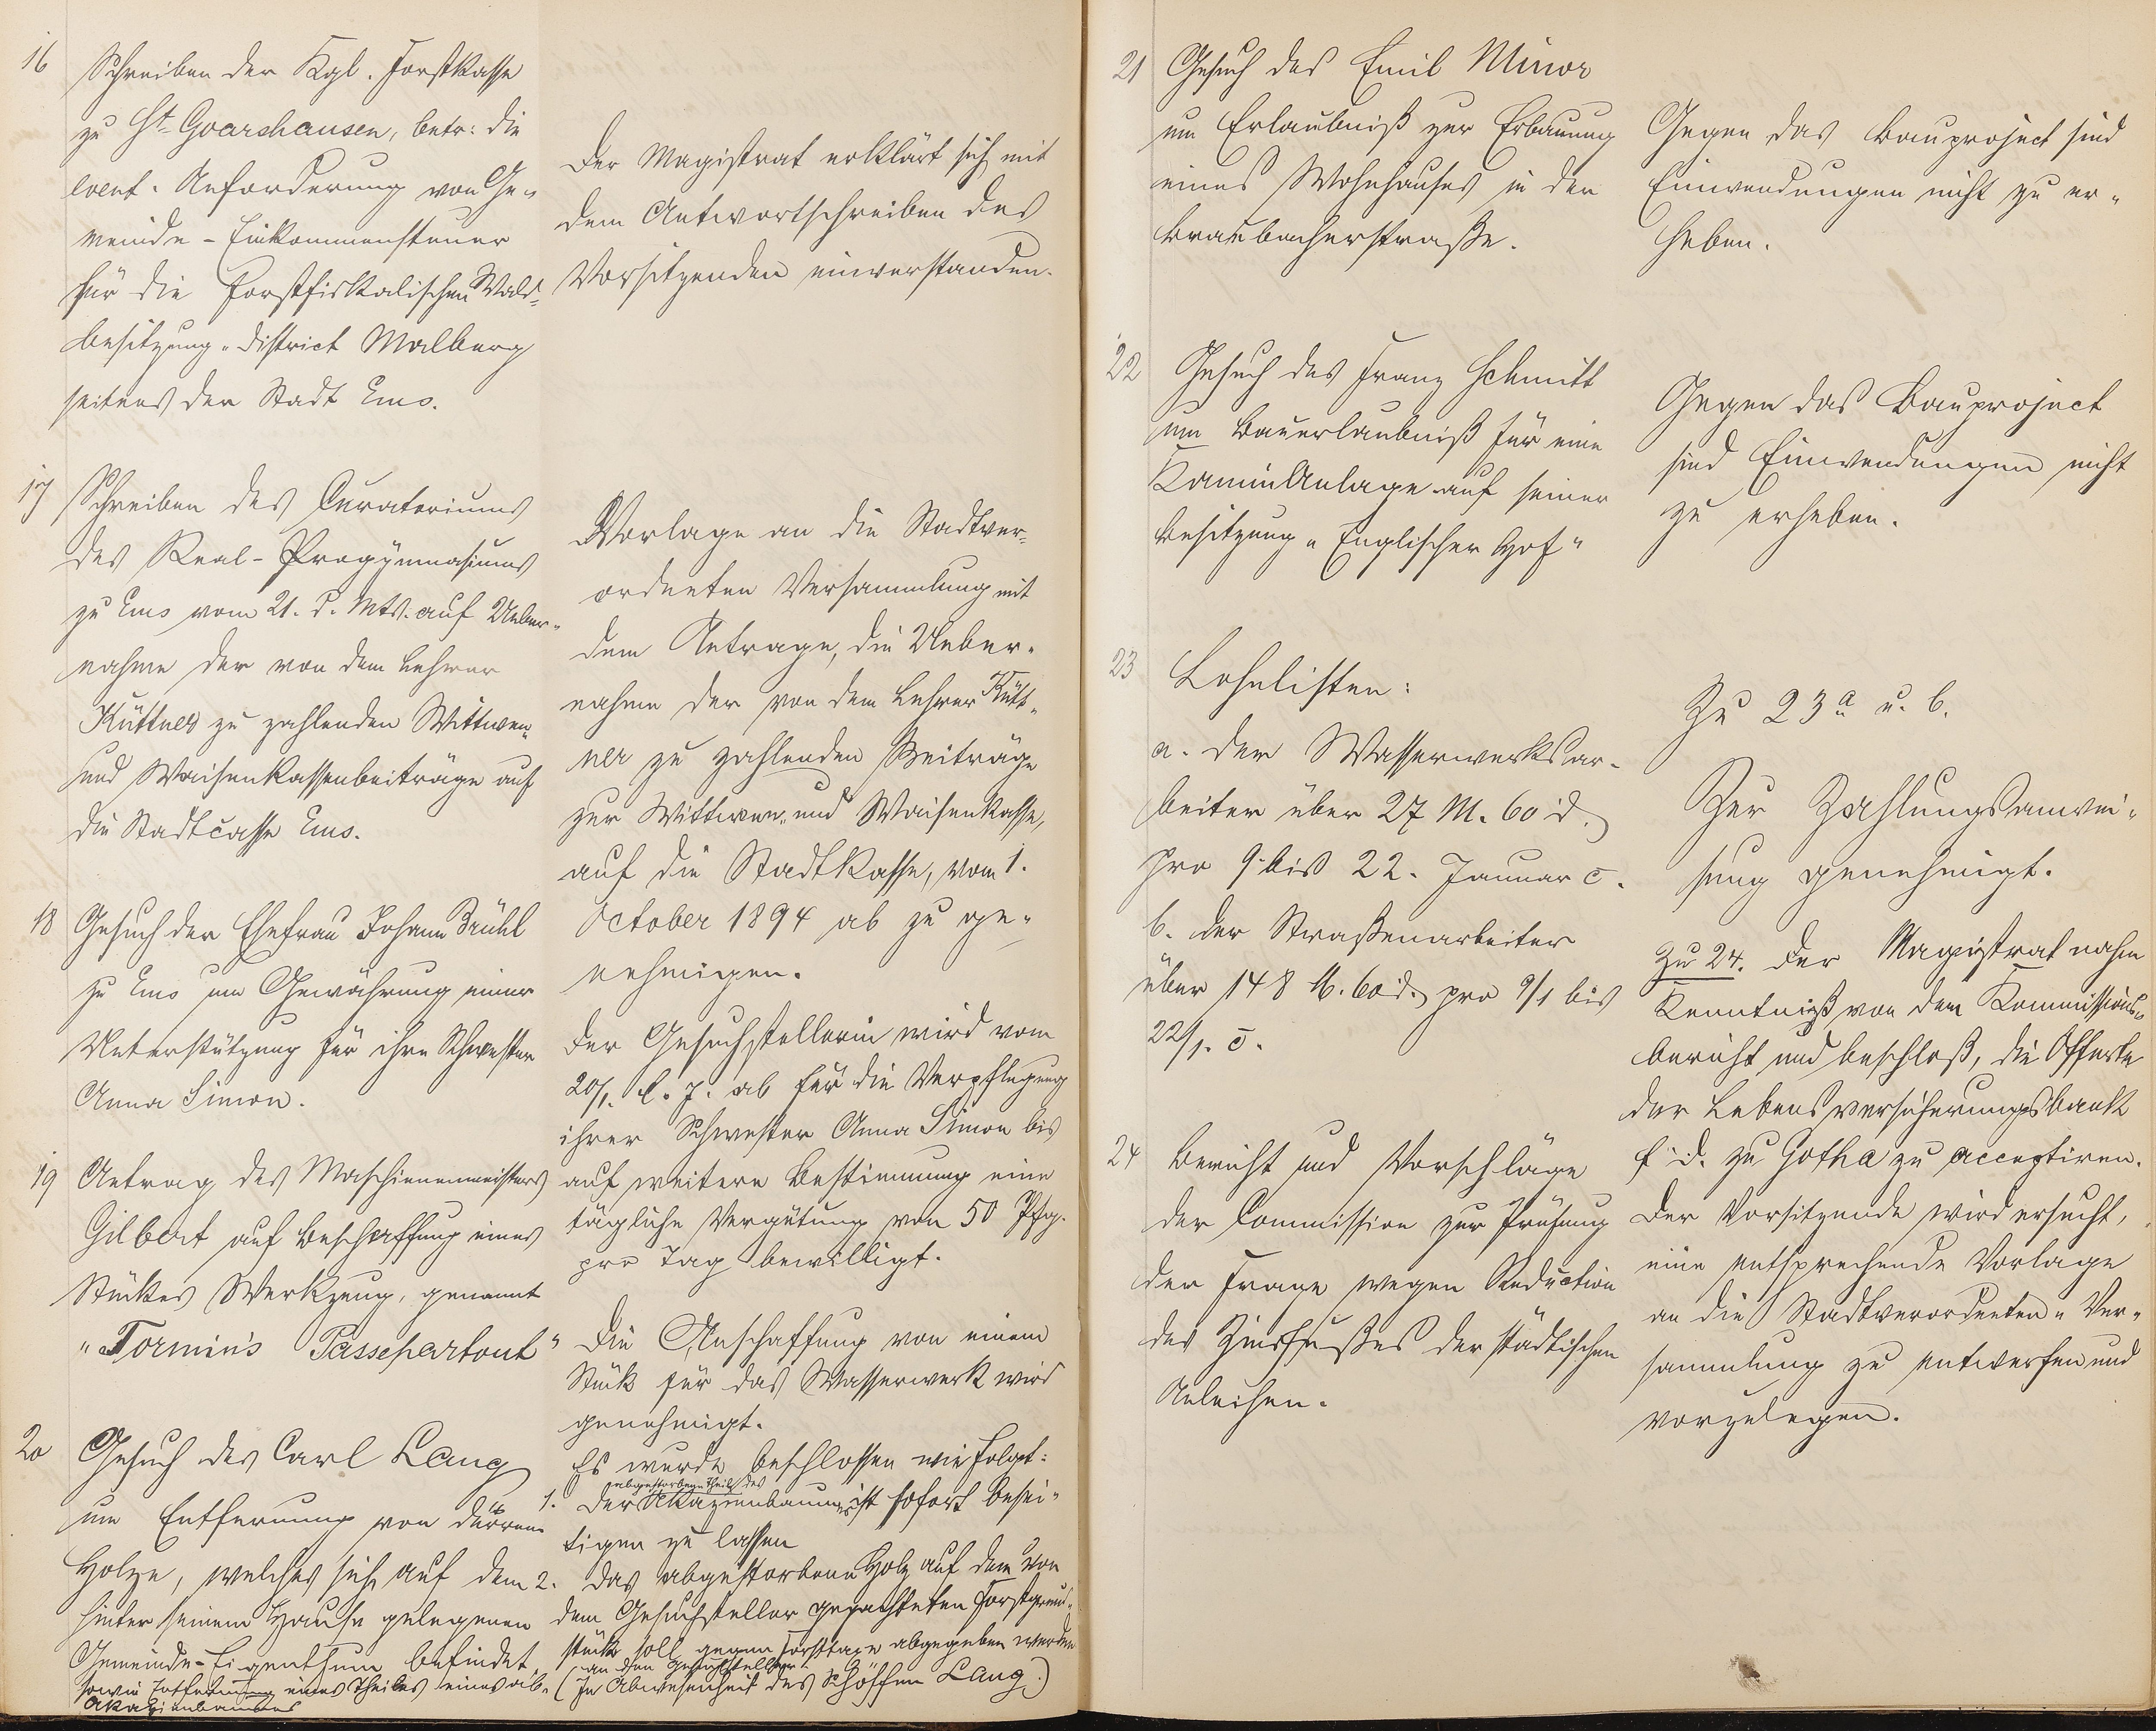 16 Schreiben der Kgl. Forstkasse
zu St. Goarshausen, betr: die
event. Anforderung von Ge-
meinde-Einkommensteuer
für die forstfiskalischen Wald-
besitzung "District Malberg
seitens der Stadt Ems.
Der Magistrat erklärt sich mit
dem Antwortschreiben des
Vorsitzenden einverstanden.
17 Schreiben des Curatoriums
des Real-Progymnasiums
zu Ems vom 21. d. Mts. auf Ueber-
nahme der von dem Lehrer
Küttner zu zahlenden Wittwen-
und Waisenkassenbeiträge auf
die Stadtcasse Ems.
Vorlage an die Stadtver-
ordneten Versammlung mit
dem Antrage, die Ueber-
nahme der von dem Lehrer Kütt-
ner zu zahlenden Beiträge
zur Wittwen- und Waisenkasse,
auf die Stadtkasse, vom 1.
October 1894 ab zu ge-
nehmigen.
18 Gesuch der Ehefrau Johann Brühl
zu Ems um Gewährung einer
Unterstützung für ihre Schwester
Anna Simon.
Der Gesuchstellerin wird vom
20/1. l. J. ab für die Verpflegung
ihrer Schwester Anna Simon bis
auf weitere Bestimmung eine
tägliche Vergütung von 50 Pfg.
pro Tag bewilligt.
19 Antrag des Maschinenmeisters
Gilbert auf Beschaffung eines
Stückes Werkzeug, genannt
"Tormin's Passepartout"
Die Anschaffung von einem
Stück für das Wasserwerk wird
genehmigt.
20 Gesuch des Carl Lang
um Entfernung von dürrem
Holze, welches sich auf dem
hinter seinem Hause gelegenen
Gemeinde-Eigenthum befindet,
sowie Entfernung eines Theiles eines ab-
Akazienbaumes
Es wurde beschlossen wie folgt:
1. Der abgestorbene Theil des Akazienbaumes ist sofort besei-
tigen zu lassen
2. Das abgestorbene Holz auf dem von
dem Gesuchsteller gepachteten Forstgrund-
stück soll gegen Forsttaxe abgegeben werden
an den Gesuchsteller.
(In Abwesenheit des Schöffen Lang.)
21 Gesuch des Emil Minor
um Erlaubniß zur Erbauung
eines Wohnhauses in der
Braubacherstraße.
Gegen das Bauproject sind
Einwendungen nicht zu er-
heben.
22 Gesuch des Franz Schmitt
um Bauerlaubniß für eine
Kaminanlage auf seiner
Besitzung "Englischer Hof"
Gegen das Bauproject
sind Einwendungen nicht
zu erheben.
23 Lohnlisten:
a. der Wasserwerksar-
beiter über 27 M. 60 d.
pro 9. bis 22. Januar c.
b. der Straßenarbeiter
über 148 M. 60 d. pro 9/1 bis
22/1. c.
Zu 23 a u. b.
Zur Zahlungsanwei-
sung genehmigt.
24 Bericht und Vorschläge
der Commission zur Prüfung
der Frage wegen Reduction
des Zinsfußes der städtischen
Anleihen.
Zu 24. Der Magistrat nahm
Kenntniß von dem Kommissions-
bericht und beschloß, die Offerte
der Lebensversicherungsbank
f. D. zu Gotha zu acceptiren.
Der Vorsitzende wird ersucht,
eine entsprechende Vorlage
an die Stadtverordneten-Ver-
sammlung zu entwerfen und
vorzulegen.